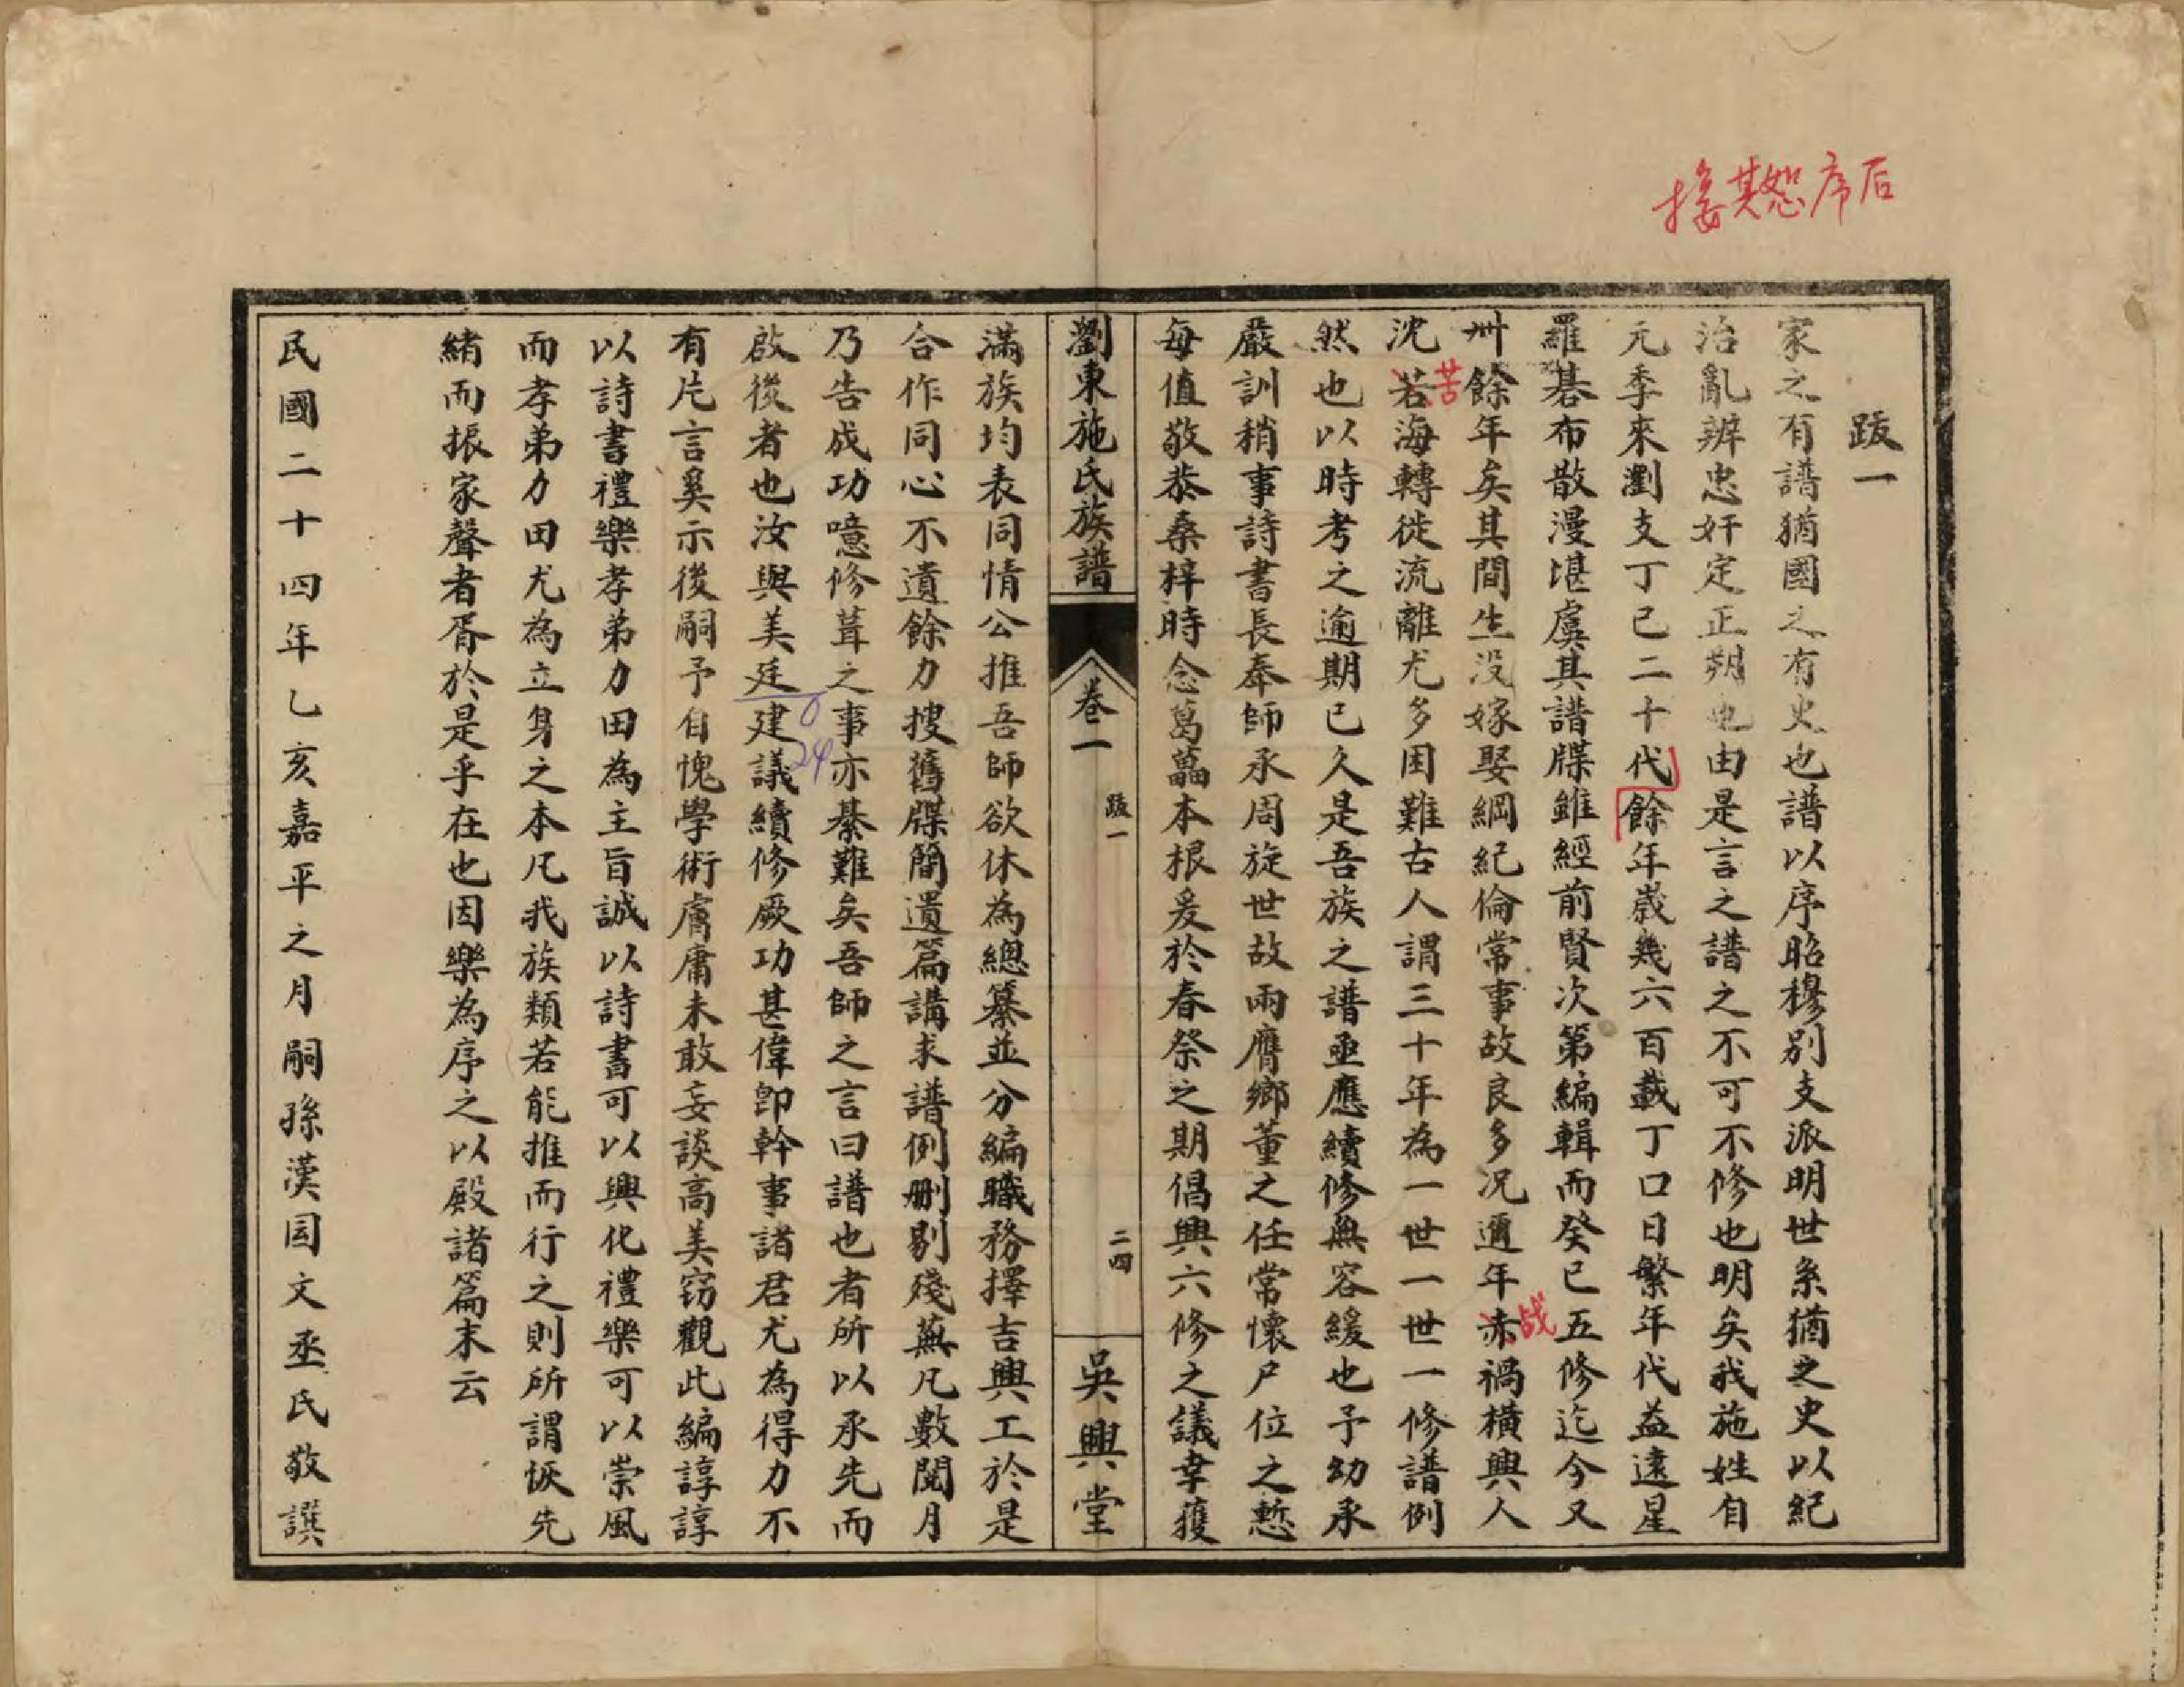 接其恕序后
跋一
家之有譜猶國之有史也譜以序昭穆別支派明世系猶之史以紀
治亂辨忠奸定正朔也由是言之譜之不可不修也明矣我施姓自
元季來瀏支丁已二十代餘年歲幾六百載丁口日繁年代益遠星
羅碁布散漫堪虞其譜牒雖經前賢次第編輯而癸巳五修迄今又
卅餘年矣其間生没嫁娶綱紀倫常事故良多况邇年赤禍橫興人
战
沈若海轉徙流離尤多困難古人謂三十年為一世一世一修譜例
苦
然也以時考之逾期已久是吾族之譜亟應續修無容緩也予幼承
嚴訓稍事詩書長奉師承周旋世故兩膺鄉董之任常懷尸位之慙
每值敬恭桑梓時念葛藟本根爰於春祭之期倡興六修之議幸獲
瀏東施氏族譜
卷一
跋一
二四
吳興堂
滿族均表同情公推吾師欲休為總纂並分編職務擇吉興工於是
合作同心不遺餘力搜舊牒簡遺篇講求譜例刪剔殘蕪凡數閱月
乃告成功噫修葺之事亦綦難矣吾師之言曰譜也者所以承先而
啟後者也汝與美廷建議續修厥功甚偉卽幹事諸君尤為得力不
24
有片言奚示後嗣予自愧學術膚庸未敢妄談高美窃觀此編諄諄
以詩書禮樂孝弟力田為主旨誠以詩書可以興化禮樂可以崇風
而孝弟力田尤為立身之本凡我族類若能推而行之則所謂恢先
緒而振家聲者胥於是乎在也因樂為序之以殿諸篇末云
民國二十四年乙亥嘉平之月嗣孫漢國文丞氏敬譔